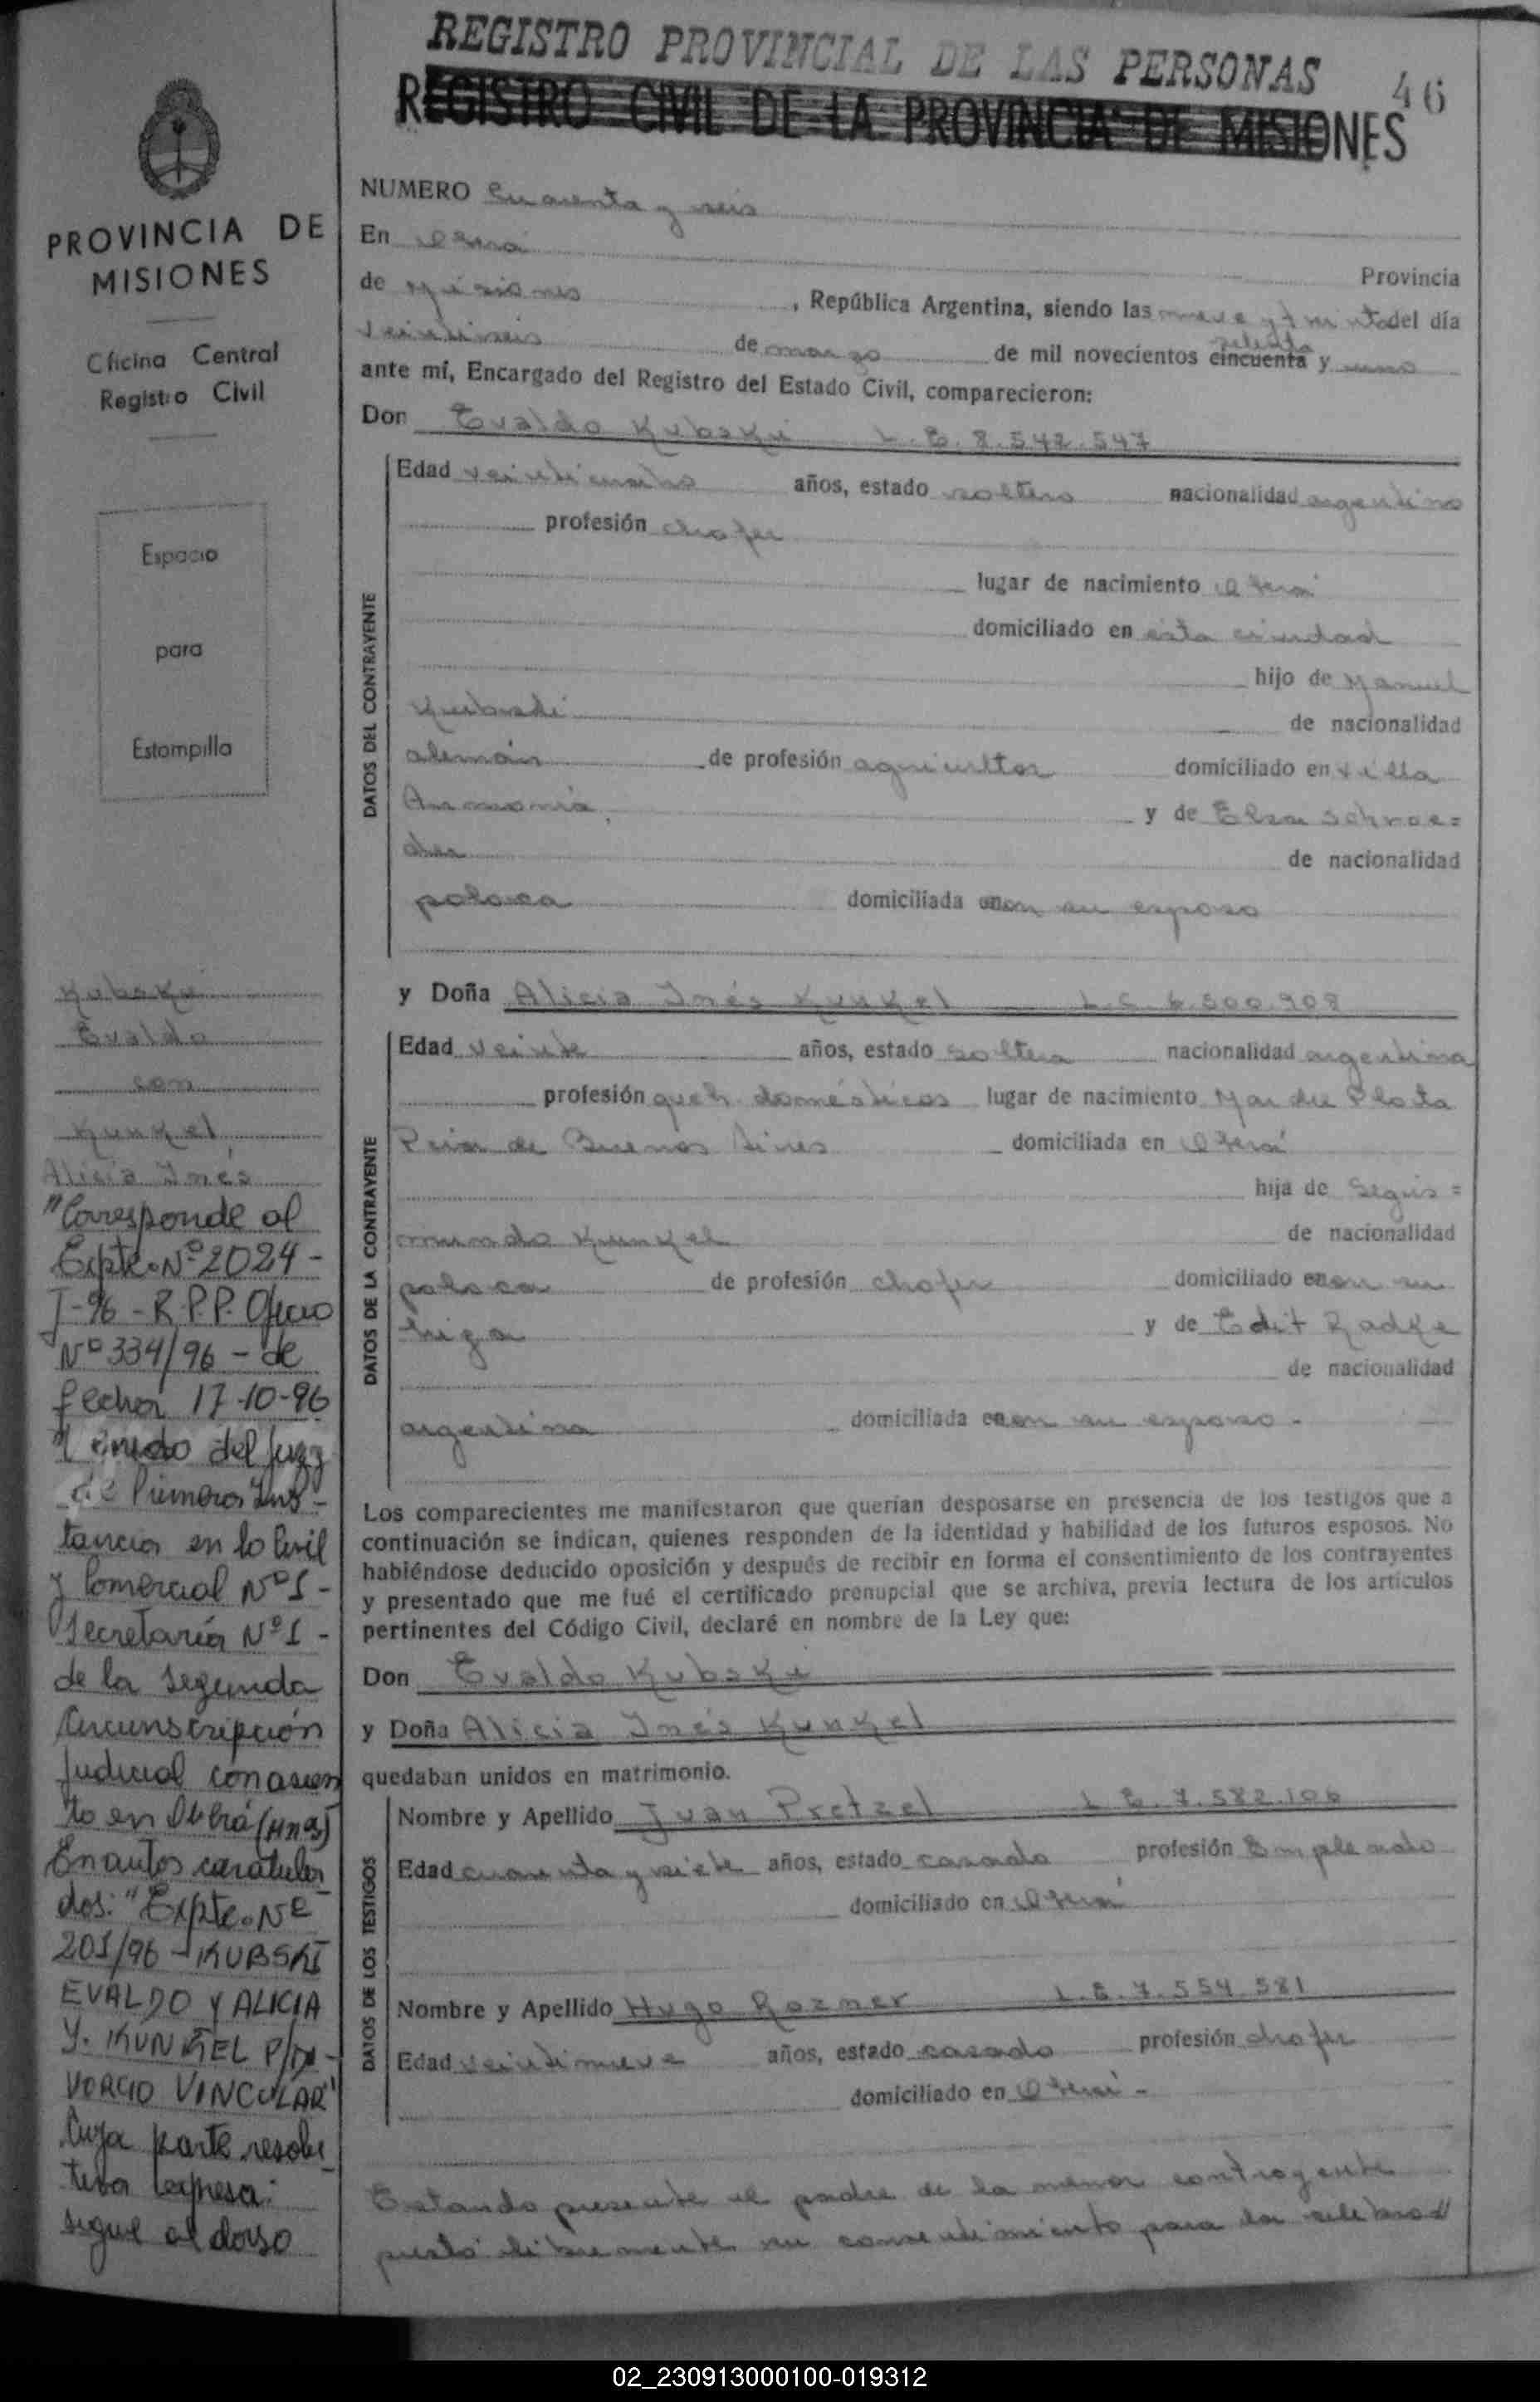 REGISTRO PROVINCIAL DE LAS PERSONAS
46
REGISTRO CIVIL DE LA PROVINCIA DE MISIONES
PROVINCIA DE
MISIONES
Oficina Central
Registro Civil
Espacio
para
Estampilla
Kubski
Evaldo
con
Kunkel
Alicia Inés
"Corresponde al
Expte. Nº 2024-
T-96-R.P.P. Oficio
Nº 334/96 - de
fecha 17-10-96
del Juzg
de Primera Ins-
tancia en lo Civil
y Comercial Nº 1-
Secretaría Nº 1-
de la Segunda
Circunscripción
Judicial con asien
to en Oberá (Mnes)
En autos caratula-
dos: "Expte. Nº
201/96 - KUBSKI
EVALDO Y ALICIA
Y. KUNKEL P/DI-
VORCIO VINCULAR"
Cuya parte resolu-
tiva expresa:
sigue al dorso
NUMERO Cuarenta y seis
En Oberá
Provincia
de Misiones, República Argentina, siendo las nueve y treinta del día
setenta
veintiseis de marzo de mil novecientos cincuenta y uno
ante mí, Encargado del Registro del Estado Civil, comparecieron:
Don Evaldo Kubski L.E. 8.542.547
DATOS DEL CONTRAYENTE
Edad veinticuatro años, estado soltero nacionalidad argentino
profesión chofer
lugar de nacimiento Oberá
domiciliado en esta ciudad
hijo de Manuel
Kubski de nacionalidad
alemán de profesión agricultor domiciliado en Villa
Armonía y de Elsa Schroe=
der de nacionalidad
polaca domiciliada con su esposo
y Doña Alicia Inés Kunkel L.C. 6.500.908
DATOS DE LA CONTRAYENTE
Edad veinte años, estado soltera nacionalidad argentina
profesión queh. domésticos lugar de nacimiento Mar del Plata
Pcia. de Buenos Aires domiciliada en Oberá
hija de Segis=
mundo Kunkel de nacionalidad
polaca de profesión chofer domiciliado con su
hija y de Edit Radke
de nacionalidad
argentina domiciliada con su esposo -
Los comparecientes me manifestaron que querían desposarse en presencia de los testigos que a
continuación se indican, quienes responden de la identidad y habilidad de los futuros esposos. No
habiéndose deducido oposición y después de recibir en forma el consentimiento de los contrayentes
y presentado que me fué el certificado prenupcial que se archiva, previa lectura de los artículos
pertinentes del Código Civil, declaré en nombre de la Ley que:
Don Evaldo Kubski
y Doña Alicia Inés Kunkel
quedaban unidos en matrimonio.
DATOS DE LOS TESTIGOS
Nombre y Apellido Juan Pretzel L.E. 7.582.106
Edad cuarenta y siete años, estado casado profesión Empleado
domiciliado en Oberá
Nombre y Apellido Hugo Rozner L.E. 7.554.581
Edad veintinueve años, estado casado profesión chofer
domiciliado en Oberá -
Estando presente el padre de la menor contrayente
prestó libremente su consentimiento para la celebra//
02_230913000100-019312